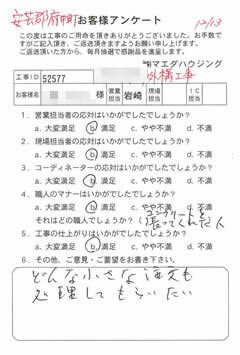 安芸郡府中町 お客様アンケート 12/13
この度は工事のご用命を頂きありがとうございました。お手数ですが
ご記入頂き、ご返送頂きますようお願い申し上げます。
ご返送頂いた方から、毎月抽選で感謝品を進呈します。
㈱マエダハウジング
外構工事
工事ID 52577
お客様名 様 営業担当 岩崎 現場担当 IC担当
1. 営業担当者の応対はいかがでしたでしょうか?
a. 大変満足 b. 満足 c. やや不満 d. 不満
2. 現場担当者の応対はいかがでしたでしょうか?
a. 大変満足 b. 満足 c. やや不満 d. 不満
3. コーディネーターの応対はいかがでしたでしょうか?
a. 大変満足 b. 満足 c. やや不満 d. 不満
4. 職人のマナーはいかがでしたでしょうか?
a. 大変満足 b. 満足 c. やや不満 d. 不満
それはどの職人でしょうか? ( コンクリートを 張ってくれた人
5. 工事の仕上がりはいかがでしたでしょうか?
a. 大変満足 b. 満足 c. やや不満 d. 不満
6. その他、ご意見・ご要望をお書き下さい。
どんな小さな注文も
処理してもらいたい